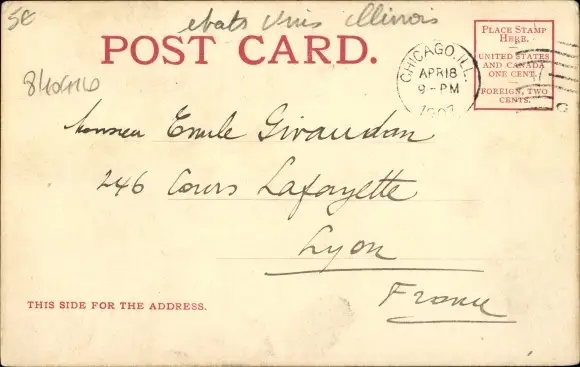 5€
etats Unis Illinois
POST CARD.
PLACE STAMP
HERE.
UNITED STATES
AND CANADA
ONE CENT.
FOREIGN, TWO
CENTS.
CHICAGO, ILL.
APR 18
9-PM
Monsieur Emile Giraudan
246 Cours Lafayette
Lyon
France
THIS SIDE FOR THE ADDRESS.